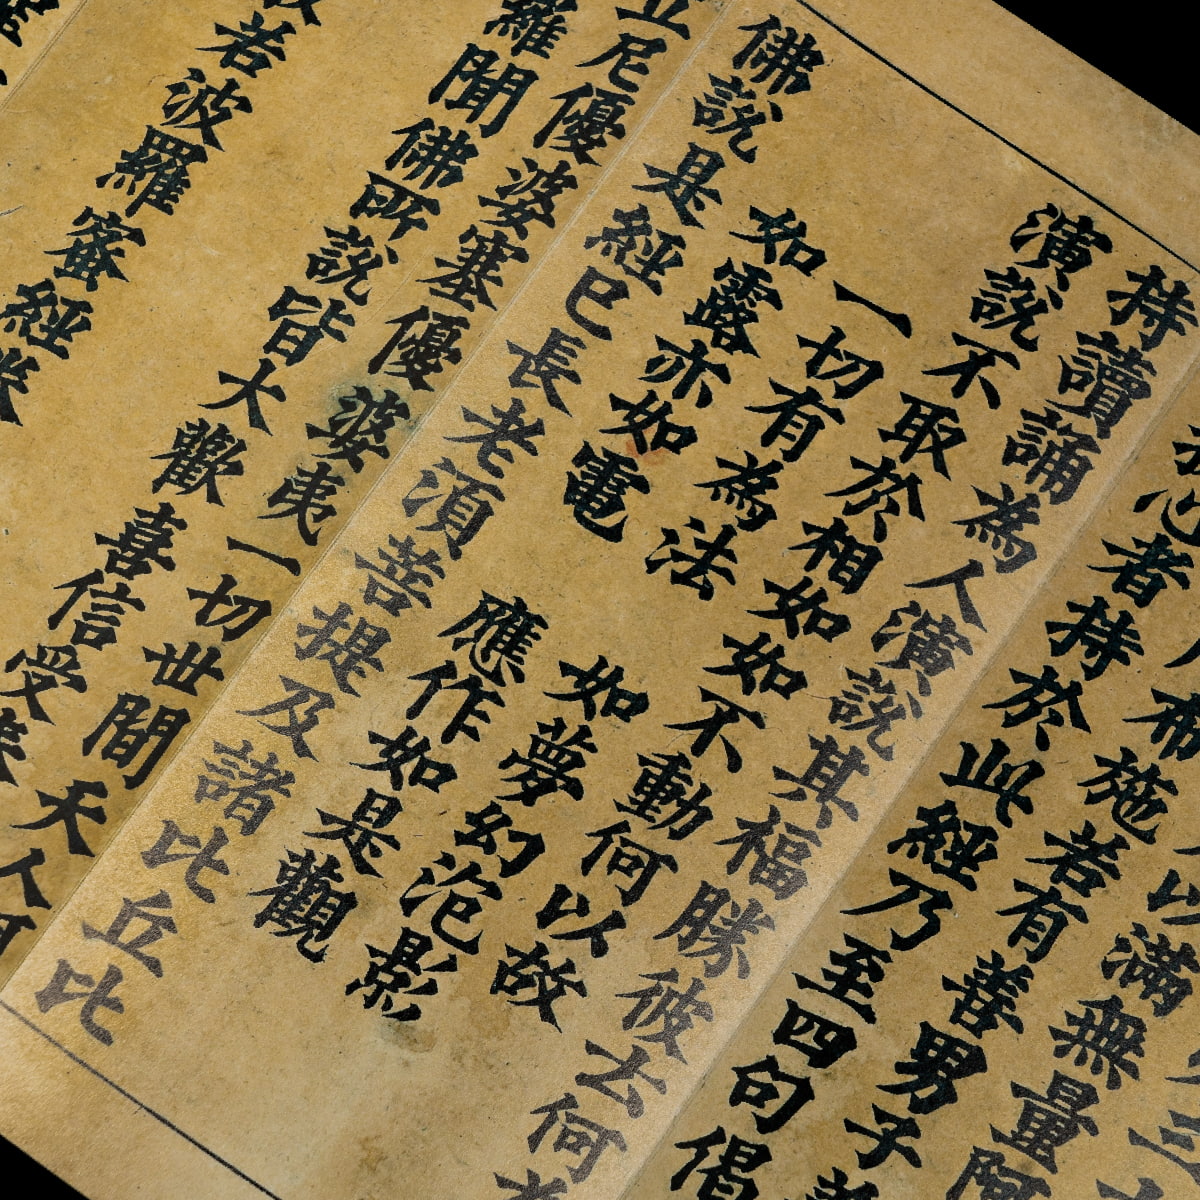 三
以滿無量阿
布施若有善男子
心者持於此經乃至四句偈
持讀誦為人演説其福勝彼云何
演説不取於相如如不動何以故
一切有為法　如夢幻泡影
如露亦如電　應作如是觀
佛説是經已長老湏菩提及諸比丘比
丘尼優婆塞優婆夷一切世間天人阿
羅聞佛所説皆大歡喜信受奉
若波羅蜜經